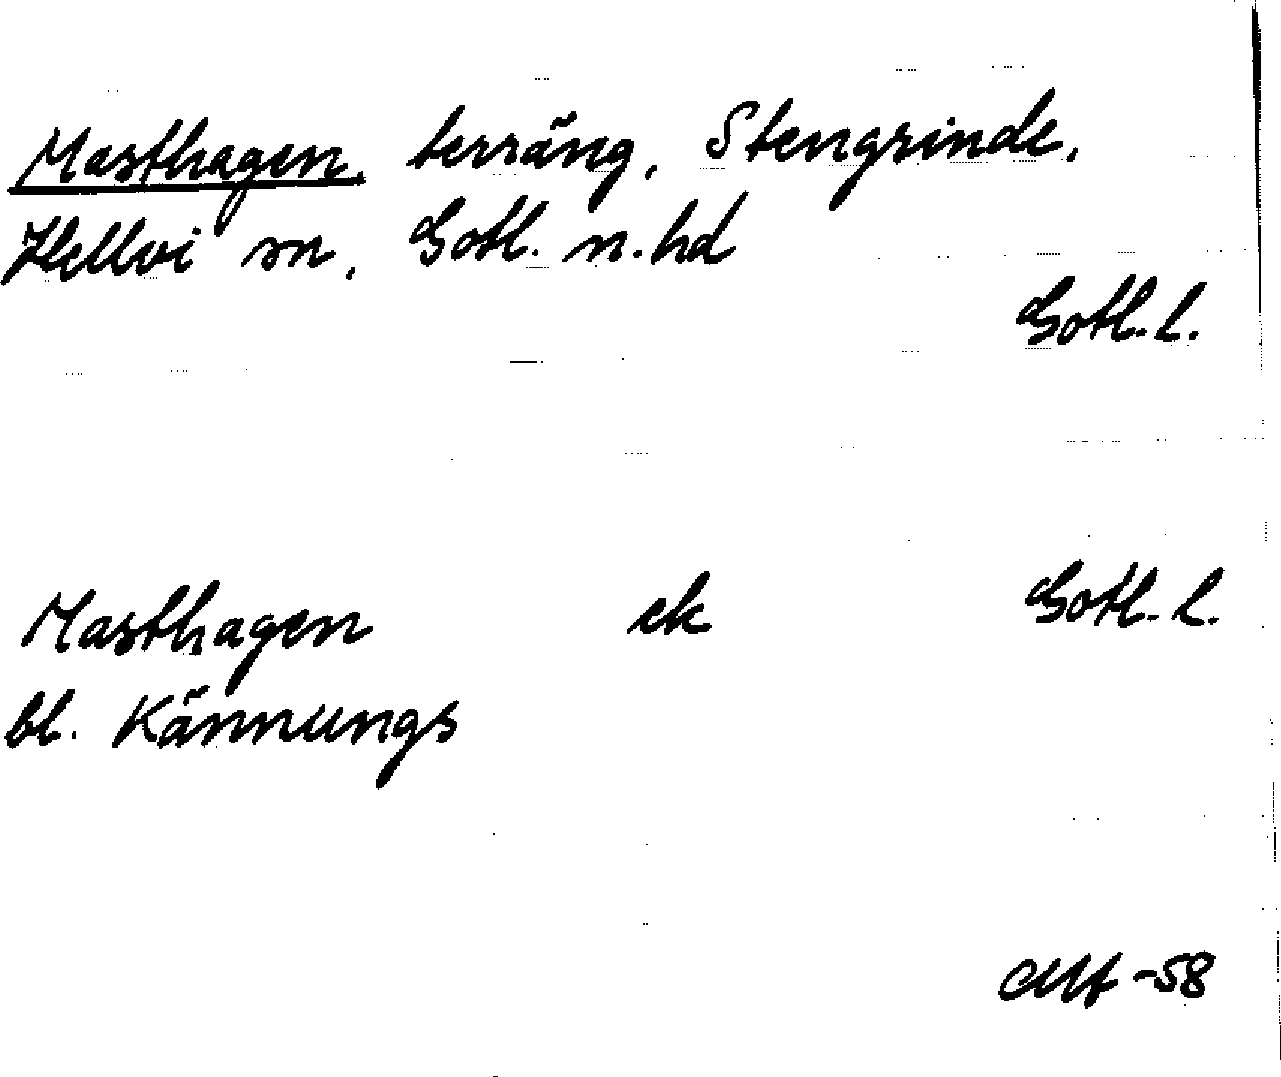 Masthagen, terräng, Stengrinde,
Hellvi sn, Gotl. n. hd
Gotl. l.
Masthagen ek Gotl. l.
bl. Kännungs
-58